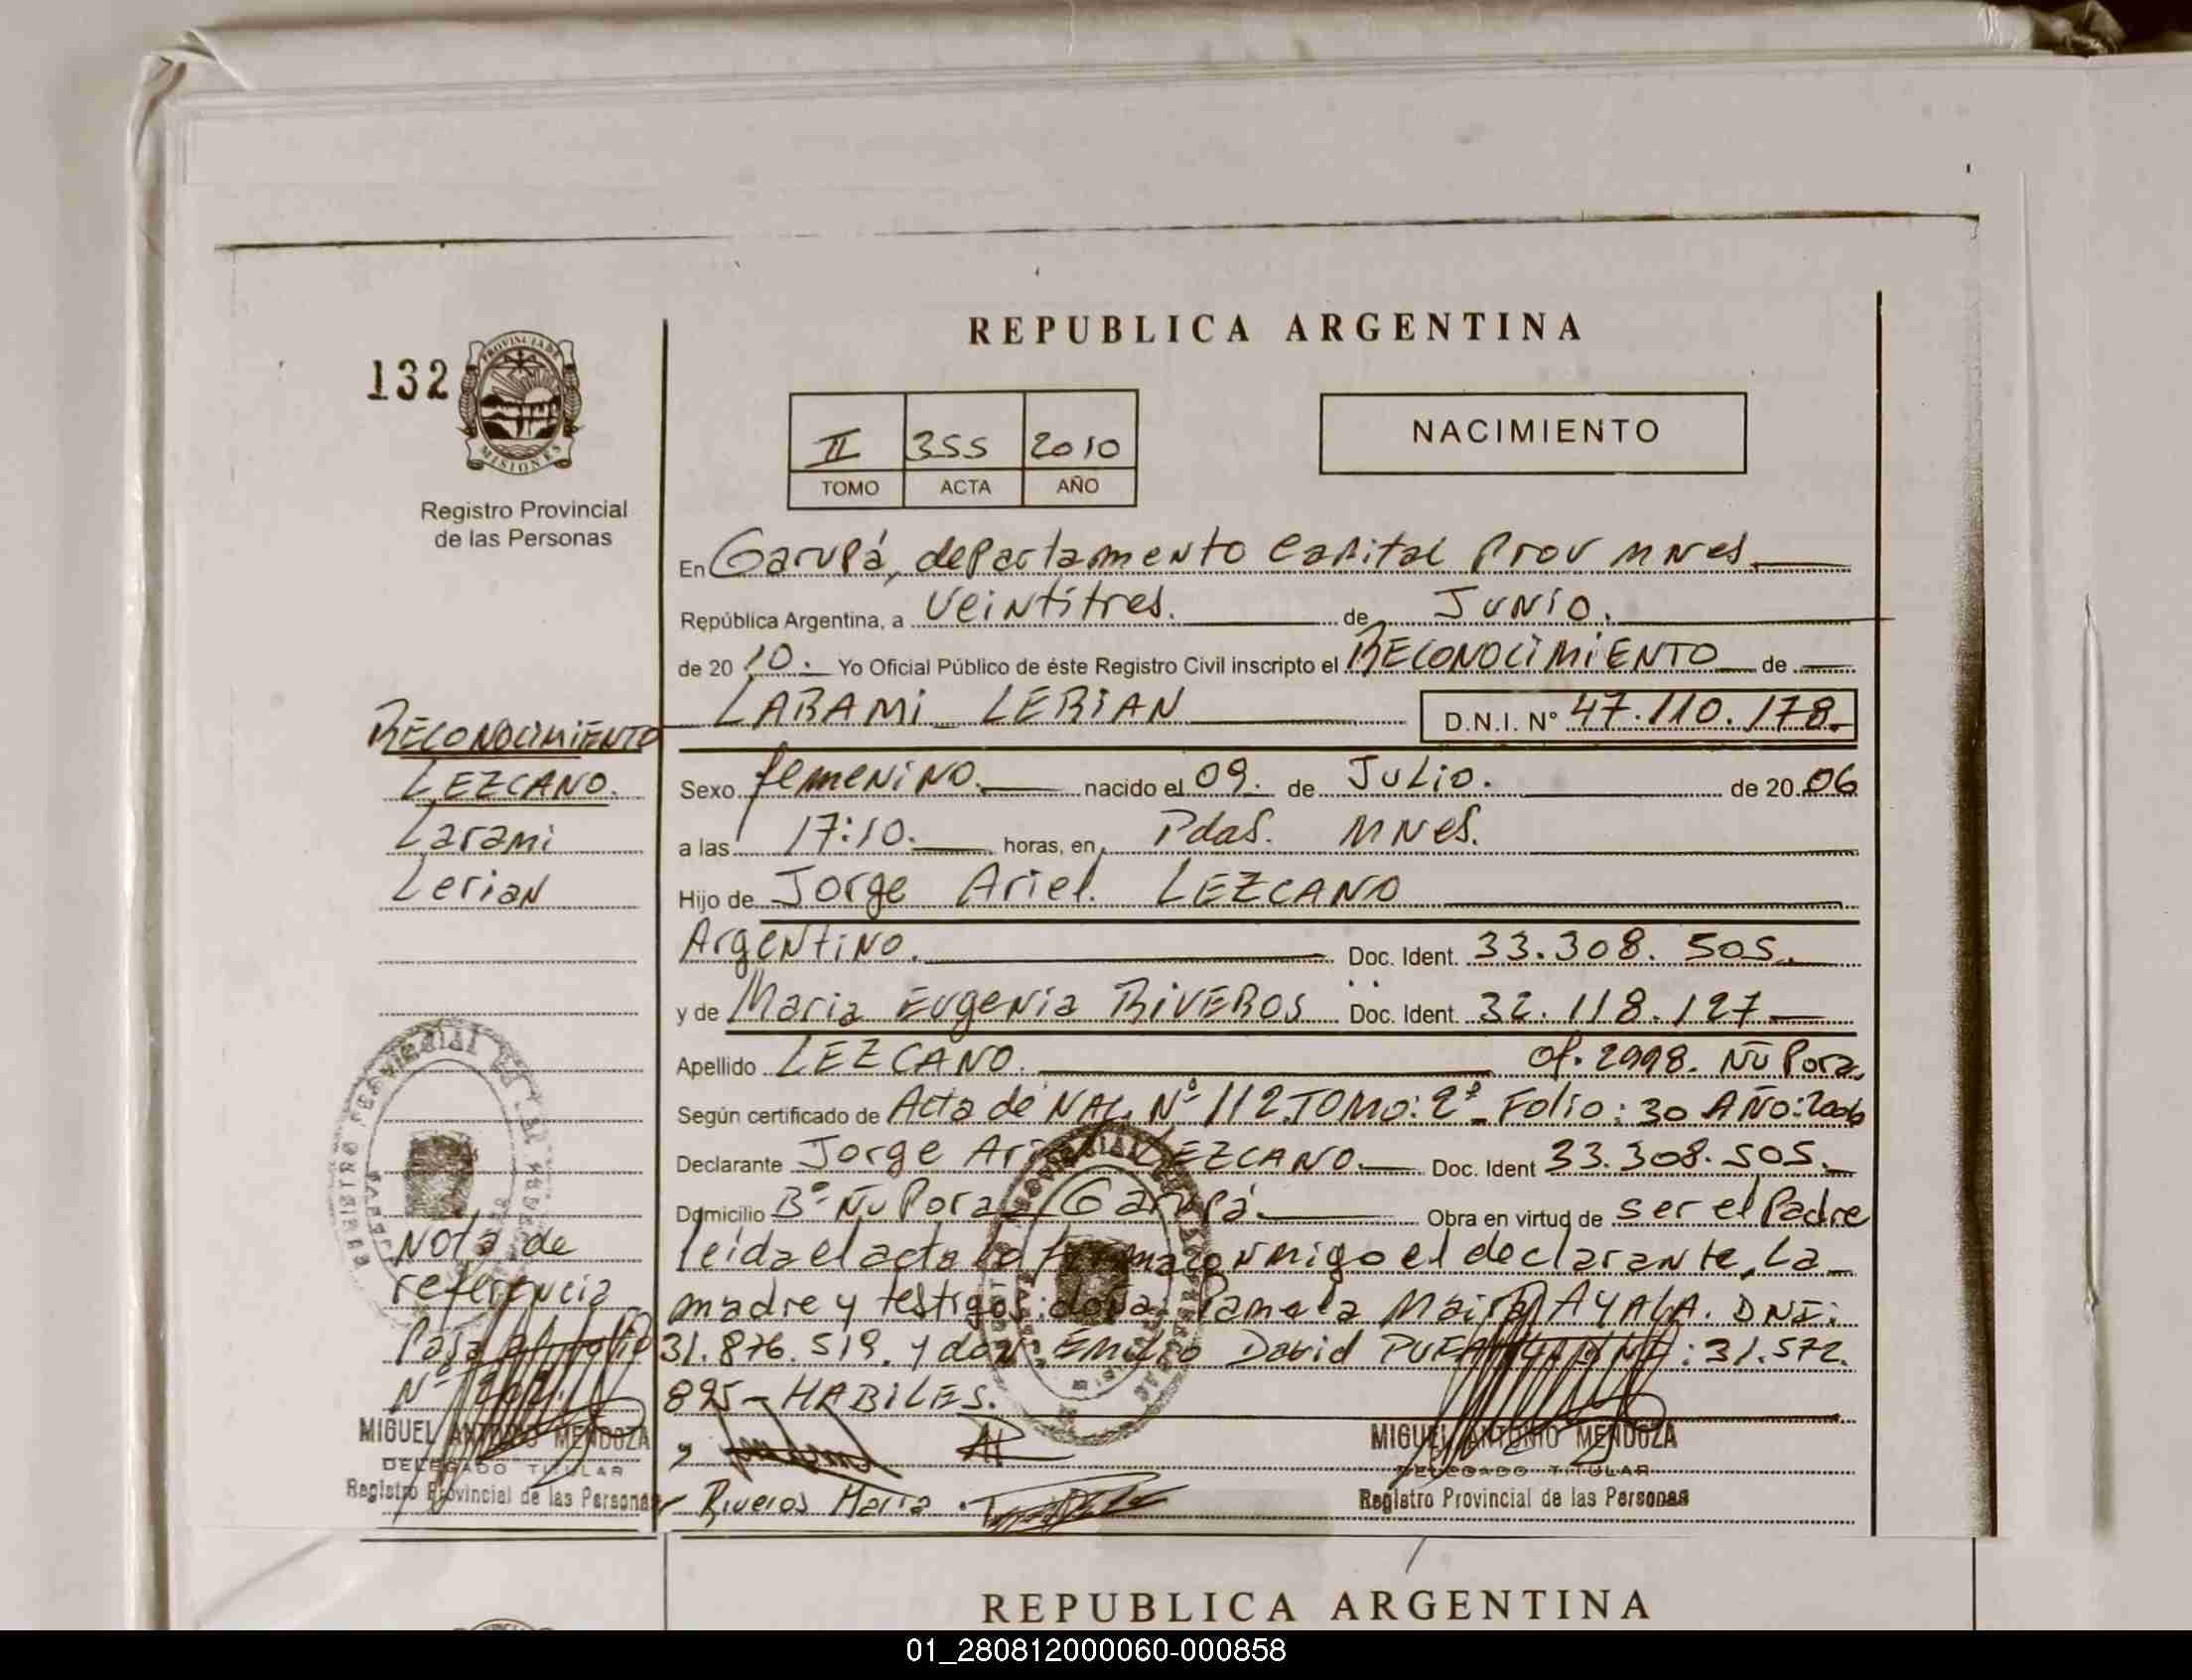 REPUBLICA ARGENTINA
132
PROVINCIA DE
MISIONES
Registro Provincial
de las Personas
II 355 2010
TOMO ACTA AÑO
NACIMIENTO
En Garupá, departamento Capital Prov Mnes
República Argentina, a Veintitres. de Junio.
de 20 10. Yo Oficial Público de éste Registro Civil inscripto el RECONOCIMIENTO de
LARAMI LERIAN D.N.I. N° 47.110.178.
Sexo femenino. nacido el 09. de Julio. de 20 06
a las 17:10. horas, en Pdas. Mnes.
Hijo de Jorge Ariel. LEZCANO
Argentino. Doc. Ident. 33.308.505.
y de Maria Eugenia RIVEROS Doc. Ident. 32.118.127
Apellido LEZCANO. of. 2998. Ñu Pora.
Según certificado de Acta de NAC. Nº 112. TOMO: 2º Folio: 30 AÑO: 2006
Declarante Jorge LEZCANO. Doc. Ident 33.308.505.
Domicilio Bº Ñu Pora / Garupá Obra en virtud de ser el Padre
leida el acta la firma conmigo el declarante, la
madre y testigos: doña: Pamela AYALA. DNI:
31.876.519. y don Emilio David : 31.572.
895 - HABILES.
Riveros Maria
MIGUEL ANTONIO MENDOZA
DELEGADO TITULAR
Registro Provincial de las Personas
RECONOCIMIENTO
LEZCANO.
Larami
Lerian
Nota de
referencia
Pasa al folio
Nº
MIGUEL ANTONIO MENDOZA
DELEGADO TITULAR
Registro Provincial de las Personas
REPUBLICA ARGENTINA
01_280812000060-000858